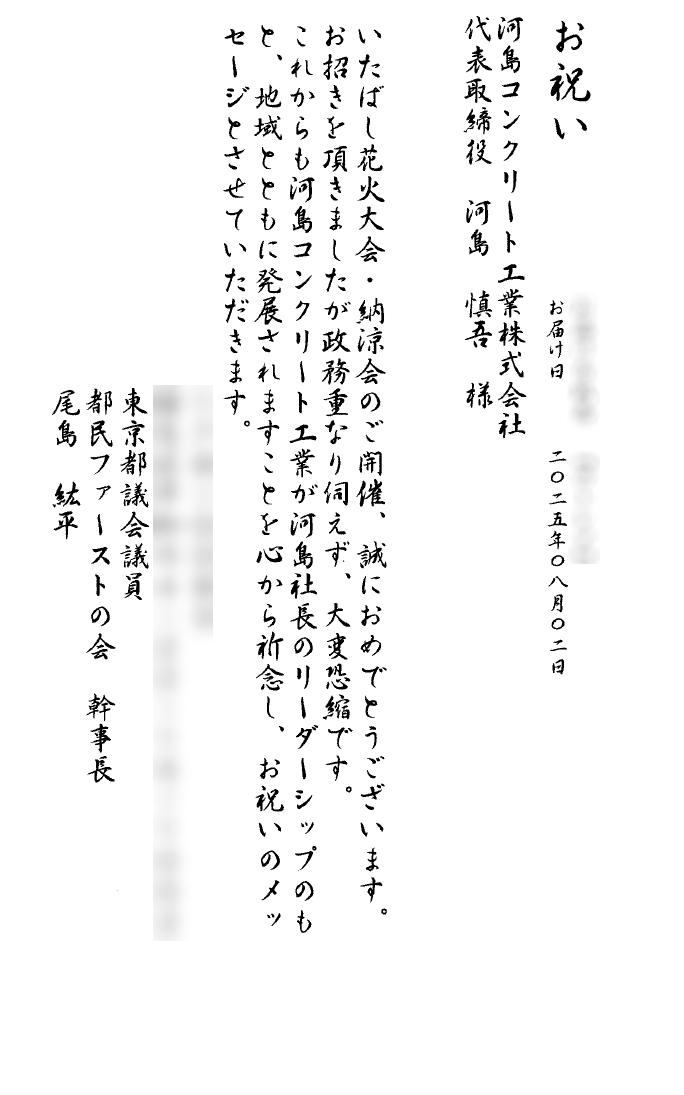 お祝い
お届け日　二〇二五年〇八月〇二日
河島コンクリート工業株式会社
代表取締役　河島　慎吾　様
いたばし花火大会・納涼会のご開催、誠におめでとうございます。
お招きを頂きましたが政務重なり伺えず、大変恐縮です。
これからも河島コンクリート工業が河島社長のリーダーシップのも
と、地域とともに発展されますことを心から祈念し、お祝いのメッ
セージとさせていただきます。
東京都議会議員
都民ファーストの会　幹事長
尾島　紘平